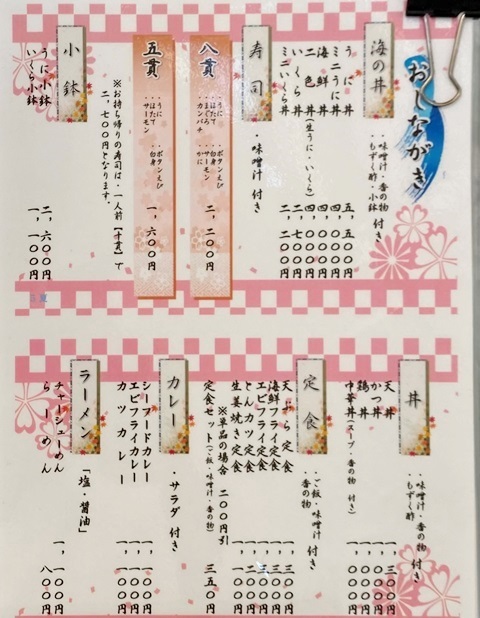 おしながき
海の丼
・味噌汁・香の物
・もずく酢・小鉢 付き
うに丼
ミニうに丼
海鮮丼
二色丼(生うに・いくら)
いくら丼
ミニいくら丼
寿司
・味噌汁 付き
八貫
・うに ・ボタンえび
・ほたて ・白身
・まぐろ ・サーモン
・カンパチ ・かに
二,二〇〇円
五貫
・うに ・ボタンえび
・ほたて ・白身
・サーモン
一,六〇〇円
※お持ち帰りの寿司は・一人前【十貫】で
二,七〇〇円となります。
小鉢
うに小鉢 二,六〇〇円
いくら小鉢 一,一〇〇円
丼
・味噌汁・香の物
・もずく酢 付き
天丼
かつ丼
鶏丼
中華丼(スープ・香の物 付き)
定食
・ご飯・味噌汁
・香の物 付き
天ぷら定食
海鮮フライ定食
エビフライ定食
とんカツ定食
生姜焼き定食
※単品の場合 二〇〇円引
定食セット(ご飯・味噌汁・香の物) 三五〇円
カレー
・サラダ 付き
シーフードカレー
エビフライカレー
カツカレー
ラーメン
「塩・醤油」
チャーシューめん 一,一〇〇円
らーめん 八〇〇円